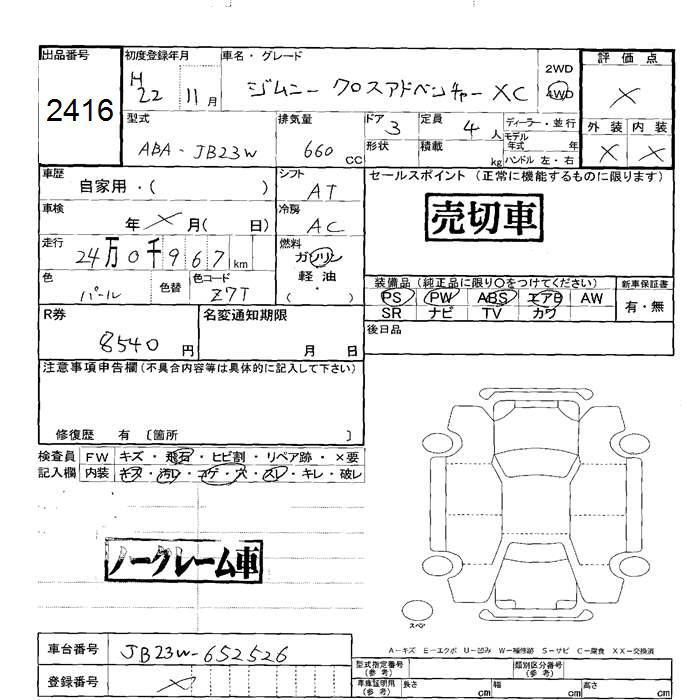 出品番号 初度登録年月 車名・グレード 2WD 評価点
2416 H22 11月 ジムニー クロスアドベンチャー XC 4WD ×
型式 排気量 ドア 定員 ディーラー・並行 外装 内装
ABA-JB23W 660 CC 3 4人 モデル年式 年 × ×
形状 積載 kg ハンドル 左・右
車歴 シフト セールスポイント (正常に機能するものに限ります)
自家用・( ) AT
売切車
車検 冷房
年 × 月( 日) AC
走行 燃料
24万0千967km ガソリン
軽・油
・( )
色 色替 色コード
パール Z7T
装備品 (純正品に限り○をつけてください) 新車保証書
PS PW ABS エアB AW 有・無
SR ナビ TV カワ
R券 名変通知期限 後日品
8540 円 月 日
注意事項申告欄(不具合内容等は具体的に記入して下さい)
修復歴 有 〔箇所 〕
検査員 FW キズ・飛石・ヒビ割・リペア跡・×要
記入欄 内装 キズ・汚レ・コゲ・穴・スレ・キレ・破レ
ノークレーム車
スペア
A-キズ E-エクボ U-凹み W-補修跡 S-サビ C-腐食 XX-交換済
車台番号 JB23W-652526
登録番号 ×
型式指定番号 (参考) 類別区分番号 (参考)
車庫証明用 (参考) 長さ cm 幅 cm 高さ cm